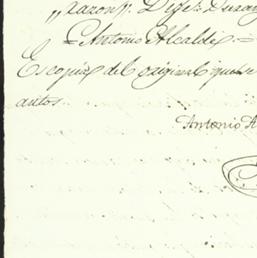 „razon„. Dije: Duran
= Antonio Alcalde. =
Es copia del original que se
autos.
Antonio A